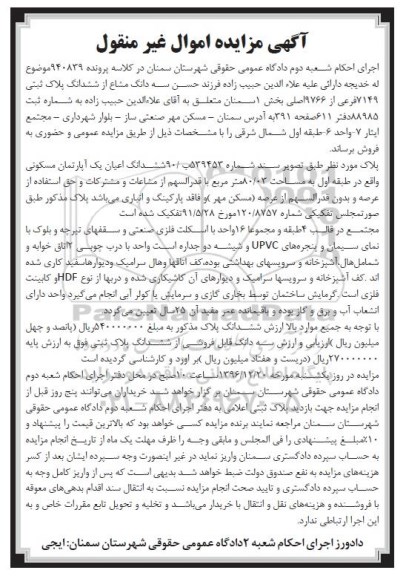 آگهی مزایده اموال غیر منقول
اجرای احکام شعبه دوم دادگاه عمومی حقوقی شهرستان سمنان در کلاسه پرونده ۹۴۰۸۳۹موضوع
له خدیجه دارائی علیه علاء الدین حبیب زاده فرزند حسن سه دانگ مشاع از ششدانگ پلاک ثبتی
۷۱۴۹فرعی از ۹۷۶۶اصلی بخش ۱سمنان متعلق به آقای علاءالدین حبیب زاده به شماره ثبت
۸۸۹۸۵دفتر ۶۱۱صفحه ۳۹۱به آدرس سمنان – مسکن مهر صنعتی ساز – بلوار شهرداری – مجتمع
ایثار ۷-واحد ۶-طبقه اول شمال شرقی را با مشخصات ذیل از طریق مزایده عمومی و حضوری به
فروش برساند.
پلاک مورد نظر طبق تصویر سند شماره ۵۳۹۴۵۳ب/۹۰ششدانگ اعیان یک آپارتمان مسکونی
واقع در طبقه اول به مساحت ۸۰/۰۲متر مربع با قدرالسهم از مشاعات و مشترکات و حق استفاده از
عرصه و بدون قدرالسهم از عرصه (مسکن مهر )و فاقد پارکینگ و انباری می‌باشد پلاک مذکور طبق
صورتمجلس تفکیکی شماره ۱۲۰/۸۷۵۷مورخ ۹۱/۵/۲۸تفکیک شده است
مجتمع در قالب ۴طبقه و مجموعا ۱۶واحد با اسکلت فلزی صنعتی و سقفهای تیرچه و بلوک با
نمای سیمان و پنجره‌های UPVC و شیشه دو جداره است واحد با درب چوبی ۲اتاق خوابه و
شامل‌هال.آشپزخانه و سرویسهای بهداشتی بوده.کف اتاقها وهال سرامیک ودیوارهاسفید کاری شده
اند .کف آشپزخانه و سرویسها سرامیک و دیوارهای آن کاشیکاری شده و دربها از نوع HDFو کابینت
فلزی است .گرمایش ساختمان توسط بخاری گازی و سرمایش با کولر آبی انجام می‌گیرد.واحد دارای
انشعاب آب و برق و گاز بوده و باقیمانده عمر مفید آن ۲۵سال تعیین می‌گردد
با توجه به جمیع موارد بالا ارزش ششدانگ پلاک مذکور به مبلغ ۵۴۰۰۰۰۰۰۰ریال (پانصد و چهل
میلیون ریال )ارزیابی و ارزش سه دانگ قابل فروش از ششدانگ پلاک ثبتی فوق به ارزش پایه
۲۷۰۰۰۰۰۰۰ریال (دویست و هفتاد میلیون ریال )بر اورد و کارشناسی گردیده است
مزایده در روز یکشنبه مورخه ۱۳۹۶/۱۲/۲۰ساعت ۱۰صبح در محل دفتر اجرای احکام شعبه دوم
دادگاه عمومی حقوقی شهرستان سمنان بر گزار خواهد شد خریداران می‌توانند پنج روز قبل از
انجام مزایده جهت بازدید پلاک ثبتی اعلامی به دفتر اجرای احکام شعبه دوم دادگاه عمومی حقوقی
شهرستان سمنان مراجعه نمایند برنده مزایده کسی خواهد بود که بالاترین قیمت را پیشنهاد و
۱۰٪مبلغ پیشنهادی را فی المجلس و مابقی وجه را ظرف مهلت یک ماه از تاریخ انجام مزایده
به حساب سپرده دادگستری سمنان واریز نماید در غیر اینصورت وجه سپرده ایشان بعد از کسر
هزینه‌های مزایده به نفع صندوق دولت ضبط خواهد شد بدیهی است که پس از واریز کامل وجه به
حساب سپرده دادگستری و تایید صحت انجام مزایده نسبت به انتقال سند اقدام بدهی‌های معوقه
با فروشنده و هزینه‌های نقل و انتقال با خریدار می‌باشد و تخلیه و تحویل تابع مقررات خاص و به
این اجرا ارتباطی ندارد.
دادورز اجرای احکام شعبه ۲دادگاه عمومی حقوقی شهرستان سمنان: ایجی